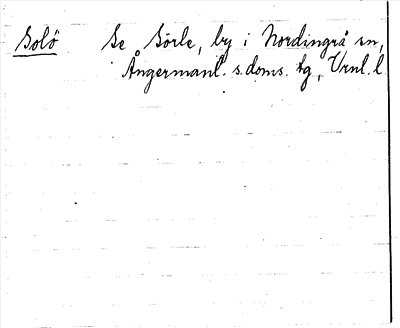 Solö Se Sörle, by i Nordingrå sn,
Ångermanl. s. doms. tg, Vrnl. l